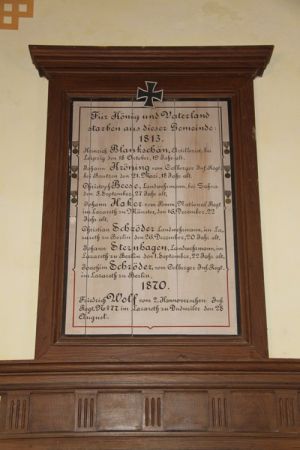 Für König und Vaterland
starben aus dieser Gemeinde:
1813.
Heinrich Blankschän, Artillerist, bei
Leipzig den 18 October, 19 Jahr alt.
Johann Kröning vom Colberger Inf. Regt.
bei Bautzen den 21. Mai, 18 Jahr alt.
Christoph Beese, Landwehrmann, bei
den 5. September, 27 Jahr alt.
Johann Haker vom Pomm. National Regt.
im Lazareth zu Münster, den 16. Dezember, 22
Jahr alt.
Christian Schröder Landwehrmann, im La-
zareth zu Berlin, den 26. Dezember, 20 Jahr alt.
Johann Sternhagen, Landwehrmann, im
Lazareth zu Berlin den 1. September, 22 Jahr alt.
Joachim Schröder, vom Colberger Inf. Regt.
im Lazareth zu Berlin.
1870.
Friedrich Wolf vom 2. Hannoverschen Inf.
Regt. No 77 im Lazareth zu Dudweiler den 28
August.